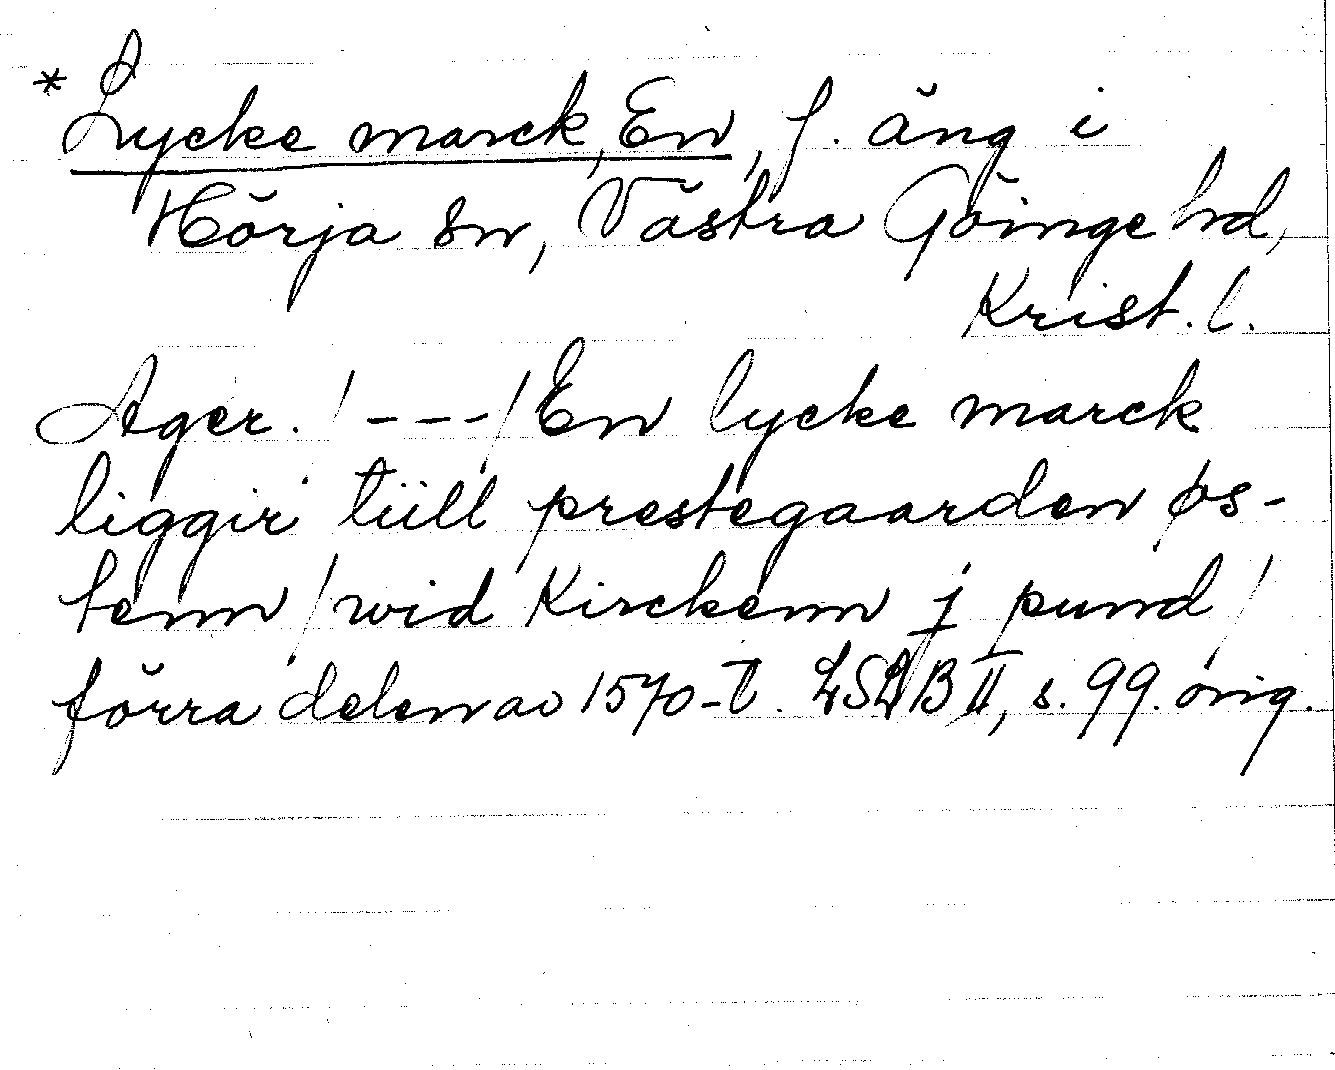 * Lycke marck, En, f. äng i
Hörja sn, Västra Göinge hd,
Krist. l.
Ager. / - - - / En lycke marck
liggir tiill prestegaarden øs-
tenn / wid Kirckenn j pund /
förra delen av 1570-t. LSLB II, s. 99. orig.